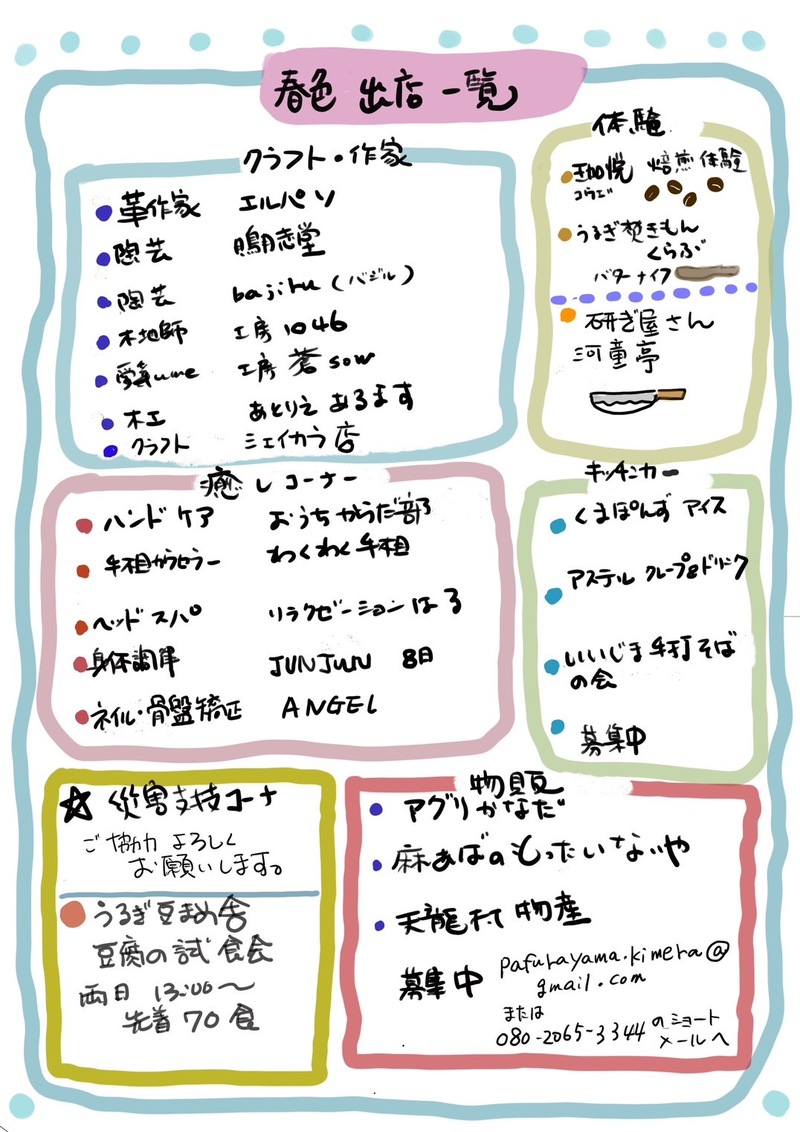 春色 出店一覧
クラフト・作家
革作家 エルパソ
陶芸 鳴志堂
陶芸 bajiru (バジル)
木地師 工房1046
工房 蒼sow
木工 あとりえ あるます
クラフト シェイカラ店
体験
珈悦 焙煎体験
コウエツ
うるぎ焚きもん
くらぶ
バターナイフ
研ぎ屋さん
河童亭
癒しコーナー
ハンドケア おうちからだ部
手相カウンセラー わくわく手相
ヘッドスパ リラクゼーションはる
身体調律 JUNJUN 8日
ネイル・骨盤矯正 ANGEL
キッチンカー
くまぽんず アイス
アステル クレープ&ドリンク
いいじま手打そば
の会
募集中
☆ 災害支援コーナ
ご協力よろしく
お願いします。
うるぎ豆まめ舎
豆腐の試食会
両日 13:00〜
先着70食
物販
アグリかなだ
麻あばのもったいないや
天龍村物産
募集中 pafurayama.kimera@
gmail.com
または
080-2065-3344のショート
メールへ